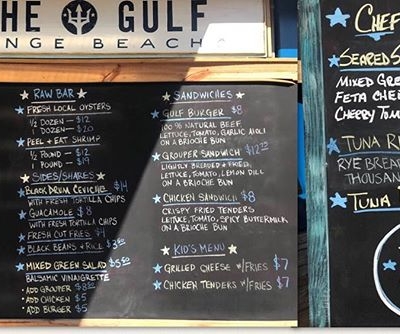 HE GULF
NGE BEACH
RAW BAR
FRESH LOCAL OYSTERS
½ DOZEN — $12
1 DOZEN — $20
PEEL + EAT SHRIMP
½ POUND — $12
1 POUND — $19
SIDES/SHARES
BLACK DRUM CEVICHE $14
WITH FRESH TORTILLA CHIPS
GUACAMOLE $8
WITH FRESH TORTILLA CHIPS
FRESH CUT FRIES $4
BLACK BEANS + RICE $3.50
MIXED GREEN SALAD $5.50
BALSAMIC VINAIGRETTE
• ADD GROUPER
• ADD CHICKEN $5
• ADD BURGER $5
SANDWICHES
GULF BURGER $8
100% NATURAL BEEF
LETTUCE, TOMATO, GARLIC AIOLI
ON A BRIOCHE BUN
GROUPER SANDWICH $12.50
LIGHTLY BREADED + FRIED,
LETTUCE, TOMATO, LEMON DILL
ON A BRIOCHE BUN
CHICKEN SANDWICH $8
CRISPY FRIED TENDERS
LETTUCE, TOMATO, SPICY BUTTERMILK
ON A BRIOCHE BUN
KID'S MENU
GRILLED CHEESE W/FRIES $7
CHICKEN TENDERS W/FRIES $7
CHEF
SEARED S
MIXED GRE
FETA CHEE
CHERRY TOM
TUNA R
RYE BREA
THOUSAN
TUNA